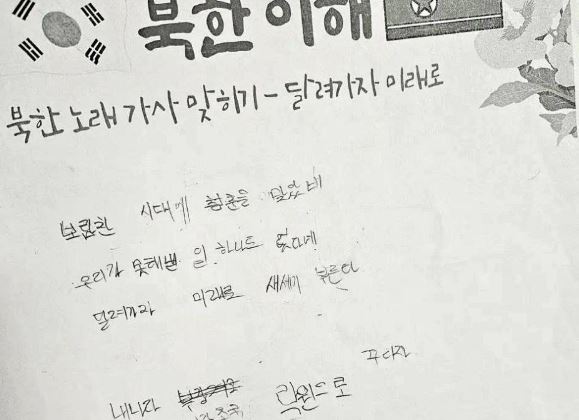 북한 이해
북한 노래 가사 맞히기 - 달려가자 미래로
보람찬 시대에 청춘을 맞았네
우리가 못해낼 일 하나도 없다네
달려가자 미래로 새세기 부른다
내나라
락원으로 꾸다자